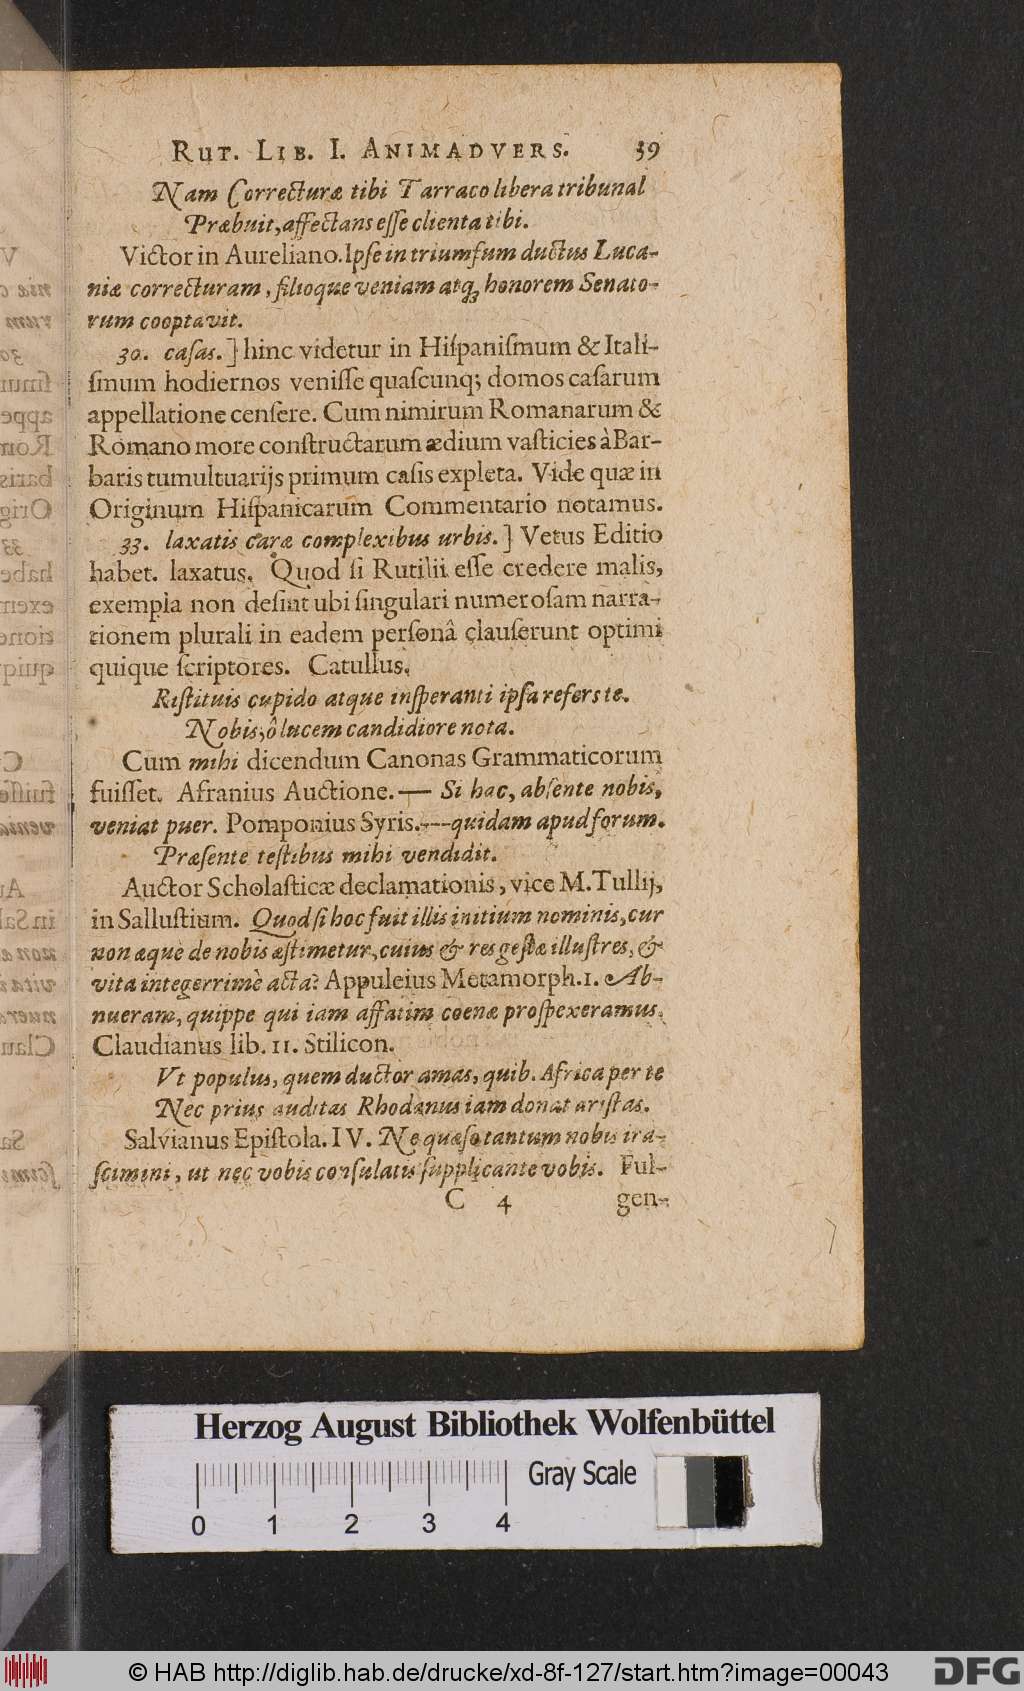 RUT. LIB. I. ANIMADVERS. 39
Nam Correcturæ tibi Tarraco libera tribunal
Præbuit, affectans esse clienta tibi.
Victor in Aureliano. Ipse in triumfum ductus Luca-
niæ correcturam, filioque veniam atq; honorem Senato-
rum cooptavit.
30. casas.] hinc videtur in Hispanismum & Itali-
smum hodiernos venisse quascunq; domos casarum
appellatione censere. Cum nimirum Romanarum &
Romano more constructarum ædium vasticies à Bar-
baris tumultuarijs primum casis expleta. Vide quæ in
Originum Hispanicarum Commentario notamus.
33. laxatis caræ complexibus urbis.] Vetus Editio
habet. laxatus. Quod si Rutilii esse credere malis,
exempla non desint ubi singulari numerosam narra-
tionem plurali in eadem personâ clauserunt optimi
quique scriptores. Catullus.
Ristituis cupido atque insperanti ipsa refers te.
Nobis, ô lucem candidiore nota.
Cum mihi dicendum Canonas Grammaticorum
fuisset. Afranius Auctione. — Si hac, absente nobis,
veniat puer. Pomponius Syris.---quidam apud forum.
Præsente testibus mihi vendidit.
Auctor Scholasticæ declamationis, vice M. Tullij,
in Sallustium. Quod si hoc fuit illis initium nominis, cur
non æque de nobis æstimetur, cuius & res gestæ illustres, &
vita integerrimè acta? Appuleius Metamorph. 1. Ab-
nueram, quippe qui iam affatim coenæ prospexeramus.
Claudianus lib. 11. Stilicon.
Vt populus, quem ductor amas, quib. Africa per te
Nec prius auditas Rhodanus iam donat aristas.
Salvianus Epistola. IV. Ne quæso tantum nobis ira-
scimini, ut nec vobis consulatis supplicante vobis. Ful-
C 4 gen-
Herzog August Bibliothek Wolfenbüttel
Gray Scale
0 1 2 3 4
© HAB http://diglib.hab.de/drucke/xd-8f-127/start.htm?image=00043
DFG